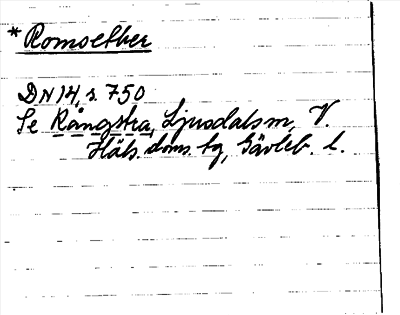 *Romsether
DN 14, s. 750
Se Rångstra, Ljusdals sn, V.
Häls. doms. tg, Gävleb. l.